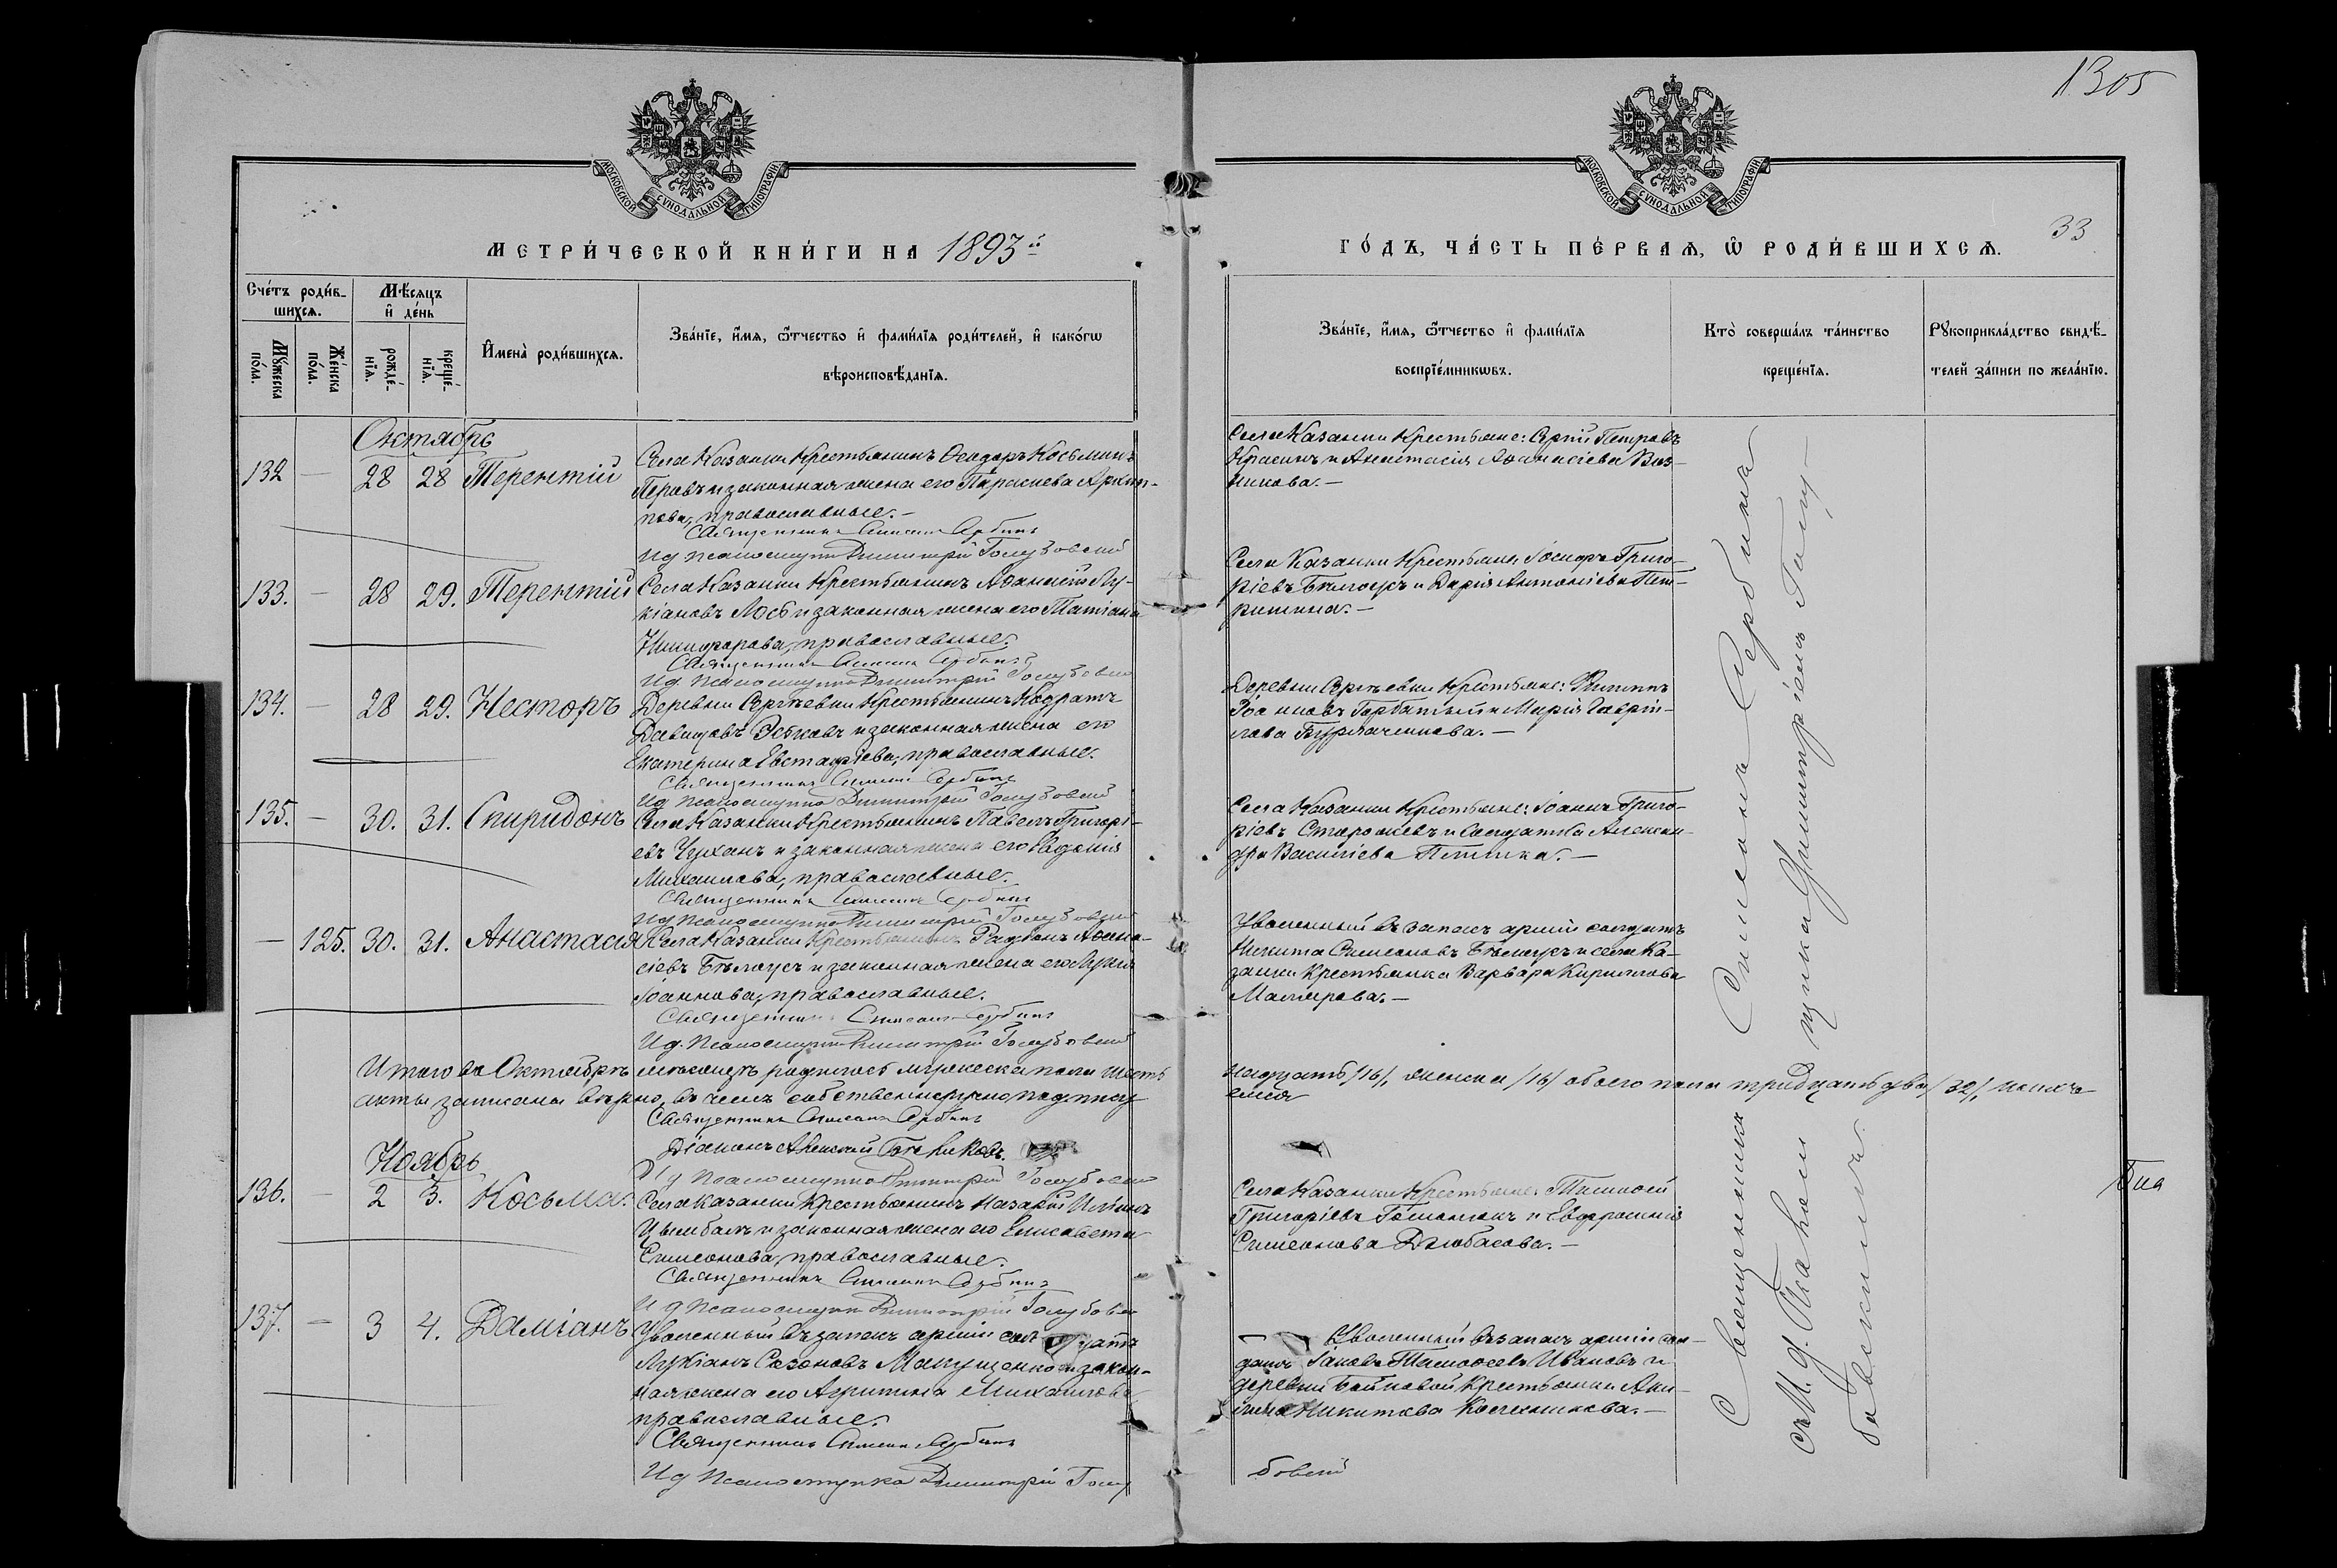 1305
33
МОСКОВСКОЙ СѴНОДАЛЬНОЙ ТИПОГРАФІИ
МОСКОВСКОЙ СѴНОДАЛЬНОЙ ТИПОГРАФІИ
МЕТРИ́ЧЕСКОЙ КНИ́ГИ НА 1893й
ГО́ДЪ, ЧА́СТЬ ПЕ́РВАЯ, Ѿ РОДИ́ВШИХСЯ.
Сче́тъ роди́в-
шихся.
Му́жеска по́ла.
Же́нска по́ла.
Мѣ́сяцъ
и де́нь
рожде́-нія.
креще́-нія.
Имена̀ роди́вшихся.
Зва́ніе, и́мя, ѻ́тчество и фами́лія роди́телей, и како́гѡ
вѣроисповѣ́данія.
Зва́ніе, и́мя, ѻ́тчество и фами́лія
воспріе́мникѡвъ.
Кто̀ соверша́лъ та́инство
креще́нія.
Рꙋкоприкла́дство свидѣ́-
телей за́писи по жела́нію.
Октябрь
132 — 28 28 Терентій
Села Казанки крестьянинъ Ѳеодоръ Косьминъ
Перовъ и законная жена его Параскева Архип-
пова, православные. —
Священникъ Симеонъ Сербинъ
И д псаломщика Димитрій Голубовскій
Села Казанки крестьяне: Сергій Петровъ
Красинъ и Анастасія Аѳанасіева Воз-
никова. —
133. — 28 29. Терентій
Села Казанки крестьянинъ Аѳанасій Лу-
кіановъ Лось и законная жена его Татіана
Никифорова, православные.
Священникъ Симеонъ Сербинъ
И д. псаломщика Димитрій Голубовскій
Села Казанки крестьяне: Іосифъ Григо-
ріевъ Бѣлоусъ и Дарія Антоніева Пет-
ришина. —
134. — 28 29. Несторъ
Деревни Сергѣевки крестьянинъ Кодратъ
Давидовъ и законная жена его
Екатерина Евстафіева, православные.
Священникъ Симеонъ Сербинъ
И д. псаломщика Димитрій Голубовскій
Деревни Сергѣевки крестьяне: Филиппъ
Іоанновъ Горбатый и Марія Гавріи-
лова Бурлаченкова. —
135. — 30. 31. Спиридонъ
Села Казанки крестьянинъ Павелъ Григорі-
евъ Чуханъ и законная жена его Евдокія
Михаилова, православные.
Священникъ Симеонъ Сербинъ
И д псаломщика Димитрій Голубовскій
Села Казанки крестьяне: Іоаннъ Григо-
ріевъ Сторожевъ и солдатка Алексан-
дра Василіева
— 125. 30. 31. Анастасія
Села Казанки крестьянинъ Родіонъ Аѳана-
сіевъ Бѣлоусъ и законная жена его Марія
Іоаннова, православные.
Священникъ Симеонъ Сербинъ
И д. псаломщика Димитрій Голубовскій
Уволенный въ запасъ арміи солдатъ
Никита Симеоновъ Бѣлоусъ и села Ка-
занки крестьянка Варвара Кириллова
Малярова. —
Итого въ Октябрѣ мѣсяцѣ родилось мужеска пола шест
надцать /16/, женска /16/ обоего пола тридцать два /32/,
акты записаны вѣрно, въ чемъ собственноручно подпису
емся
Священникъ Симеонъ Сербинъ
Діаконъ Алексій
И д псаломщика Димитрій Голубовскій
Ноябрь
136. — 2 3. Косьма.
Села Казанки крестьянинъ Назарій Иліинъ
Цымбалъ и законная жена его Елисавета
Симеонова, православные.
Священникъ Симеонъ Сербинъ
И д псаломщика Димитрій Голубовскій
Села Казанки крестьяне: Тимоѳей
Григоріевъ и Евфросинія
Симеонова Дзюбасова. —
137. — 3 4. Даміанъ
Уволенный въ запасъ арміи солдатъ
Лукіанъ Созоновъ Макущенко и закон-
ная жена его Агрипина Михаилова
православные.
Священникъ Симеонъ Сербинъ
И д псаломщика Димитрій Голу
бовскій
Уволенный въ запасъ арміи сол-
датъ Іаковъ Тимоѳеевъ Ивановъ и
деревни крестьянка Аки-
лина Никитова Колесникова. —
Священникъ Симеонъ Сербинъ
съ И. д. Псаломщика Димитріемъ Голу-
бовскимъ.